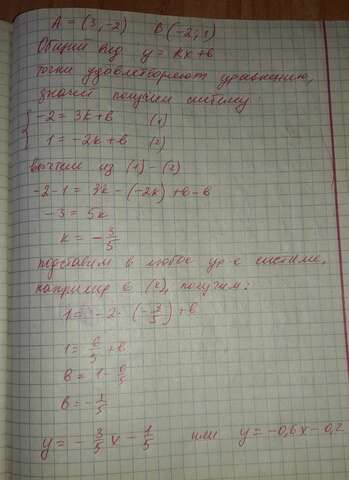 A = (3, -2) B(-2; 1)
Общий вид y = kx + b
точки удовлетворяют уравнению,
значит получим систему:
{ -2 = 3k + b (1)
1 = -2k + b (2)
вычтем из (1) - (2)
-2 - 1 = 3k - (-2k) + b - b
-3 = 5k
k = - 3/5
подставим в любое ур-е системы,
например в (2), получим:
1 = -2 · (- 3/5) + b
1 = 6/5 + b
b = 1 - 6/5
b = - 1/5
y = - 3/5 x - 1/5 или y = -0,6x - 0,2